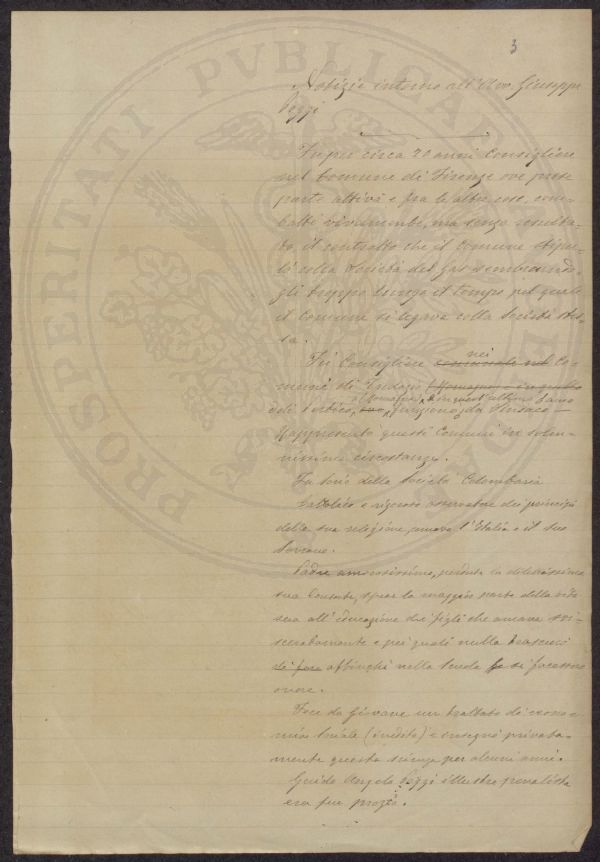 3
Notizie intorno all'Avv. Giuseppe
Pozzi
Fu per circa 20 anni Consigliere
nel Comune di Firenze ove prese
parte attiva e fra le altre cose, com-
battè vivamente, ma senza resulta-
to, il contratto che il Comune stipu-
lò colla Società del Gas sembrando-
gli troppo lungo il tempo pel quale
il Comune si legava colla Società stes-
sa.
Fu Consigliere comunale nel nei Co-
muni di
e in quest'ultimo
funzionò da Sindaco
Rappresentò questi Comuni in solen-
nissime circostanze.
Fu Socio della Società Colombaria
Cattolico e rigoroso osservatore dei principi
della sua religione, amava l'Italia e il suo
Sovrano.
Padre amorosissimo, perduta la dilettissima
sua Consorte, spese la maggior parte della vede
sua all'educazione dei figli che amava svi-
sceratamente e pei quali nulla trascurò
di fare affinchè nella Scuola si facessero
onore.
Fece da giovane un trattato di econo-
mia sociale (inedito) e insegnò privata-
mente questa scienza per alcuni anni.
Guido Angelo Pozzi illustre penalista
era suo prozio.
PROSPERITATI PVBLICAE